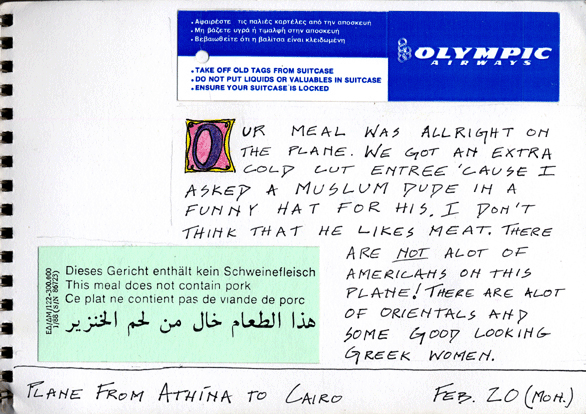 • Αφαιρέστε τις παλιές καρτέλες από την αποσκευή
• Μη βάζετε υγρά ή τιμαλφή στην αποσκευή
• Βεβαιωθείτε ότι η βαλίτσα είναι κλειδωμένη
• TAKE OFF OLD TAGS FROM SUITCASE
• DO NOT PUT LIQUIDS OR VALUABLES IN SUITCASE
• ENSURE YOUR SUITCASE IS LOCKED
OLYMPIC
AIRWAYS
OUR MEAL WAS ALLRIGHT ON
THE PLANE. WE GOT AN EXTRA
COLD CUT ENTREE 'CAUSE I
ASKED A MUSLUM DUDE IN A
FUNNY HAT FOR HIS. I DON'T
THINK THAT HE LIKES MEAT. THERE
ARE NOT ALOT OF
AMERICANS ON THIS
PLANE! THERE ARE ALOT
OF ORIENTALS AND
SOME GOOD LOOKING
GREEK WOMEN.
Dieses Gericht enthält kein Schweinefleisch
This meal does not contain pork
Ce plat ne contient pas de viande de porc
هذا الطعام خال من لحم الخنزير
ΕΔ/ΔΜ/122-300.000
1/88 (S/N 86723)
PLANE FROM ATHINA TO CAIRO FEB. 20 (MON.)